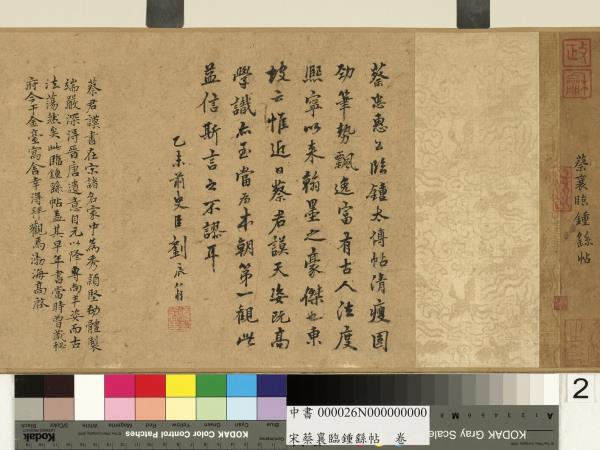 蔡襄臨鍾繇帖
蔡忠惠公臨鍾太傅帖清瘦圓
勁筆勢飄逸富有古人法度
熈寧以来翰墨之豪傑也東
坡云惟近日蔡君謨天姿既高
學識亦至當為本朝第一觀此
益信斯言之不謬耳
乙未前史臣劉辰翁
蔡君謨書在宋諸名家中為秀頴堅勁體製
端嚴深得晉唐遺意自元以降專尚丰姿而古
法蕩然矣此臨鍾繇帖蓋其早年書當時曾藏秘
府今于金臺寓舍幸得拜觀焉渤海高啓
2
中書 000026N000000000
宋蔡襄臨鍾繇帖 卷
Kodak
KODAK Color Control Patches
Blue
Cyan
Green
Yellow
Red
Magenta
White
3/Color
Black
KODAK Gray Scale
A
M